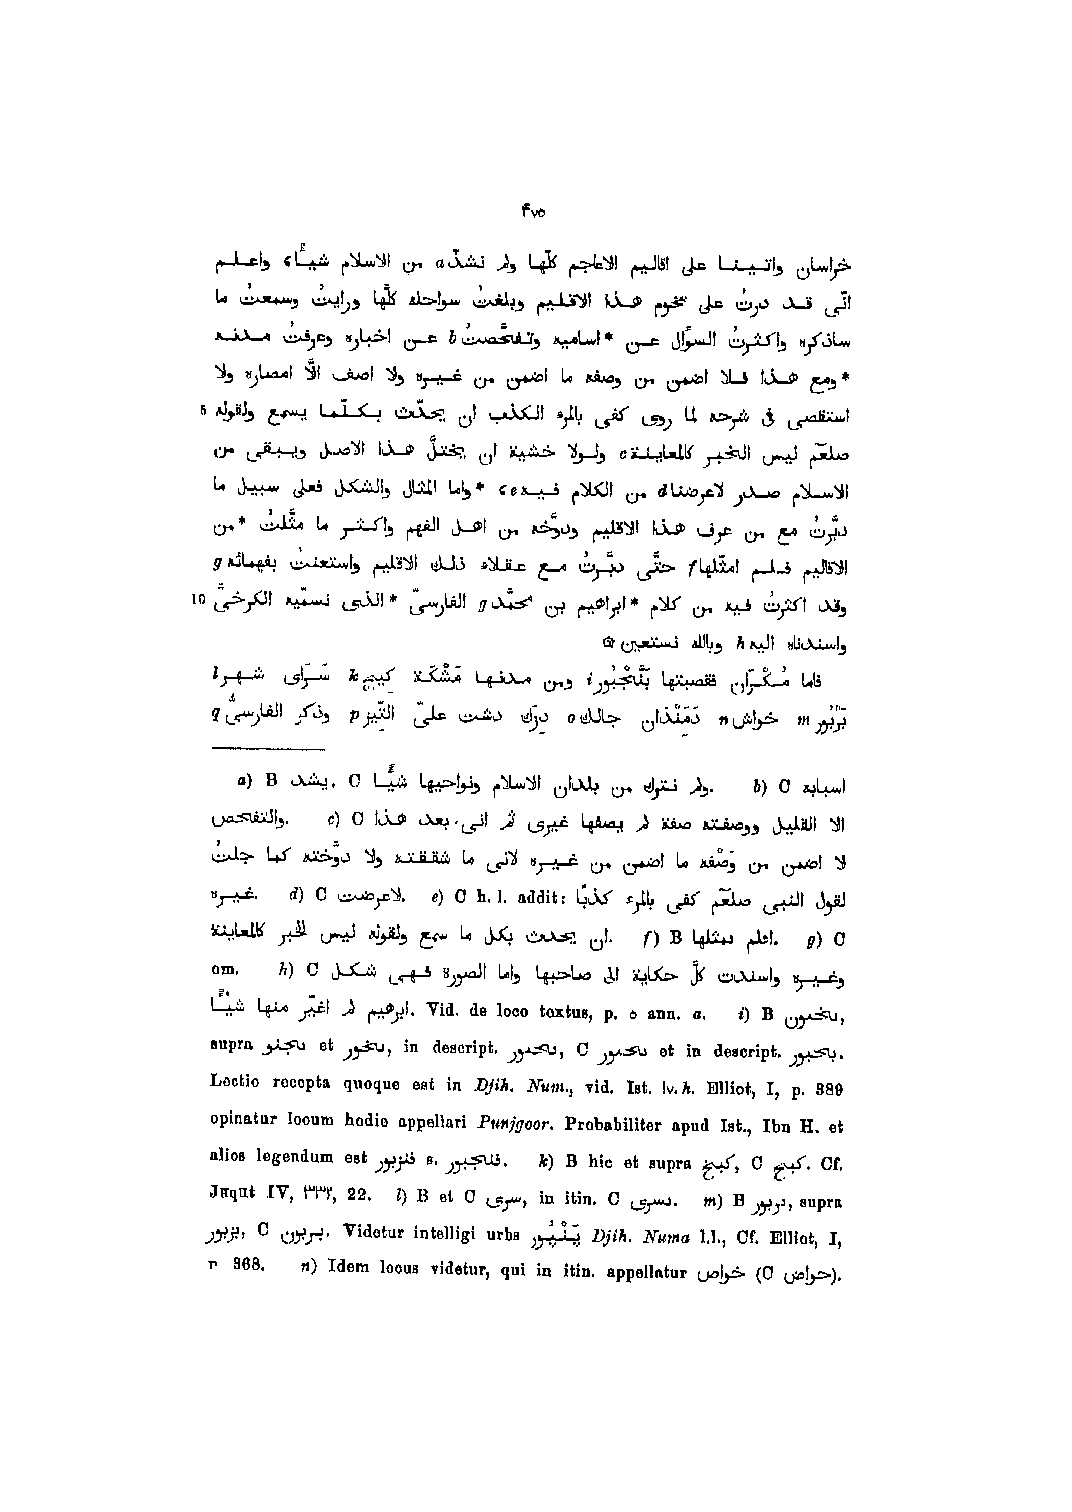 ٤٧٥
خراسان واتينا على اقاليم الاعاجم كلّها ولم نشذّ a من الاسلام شيئًاء واعلم
انّى قد درتُ على تخوم هذا الاقليم وبلغتُ سواحله كلّها ورايتُ وسمعتُ ما
ساذكره واكثرتُ السوّال عن *اساميه وتفحّصتُ b عن اخباره وعرفتُ مدنه
*ومع هذا فلا اضمن من وصفه ما اضمن من غيره ولا اصف الّا امصاره ولا
5 استقصى فى شرحه لما روى كفى بالمرء الكذب ان يحدّث بكلّما يسمع ولقوله
صلعّم ليس الخبر كالمعاينة c ولولا خشية ان يختلّ هذا الاصل ويبقى من
الاسلام صدر لاعرضنا d من الكلام فيه e ء *واما المثال والشكل فعلى سبيل ما
دبّرتُ مع من عرف هذا الاقليم ودوّخه من اهل الفهم واكثر ما مثّلتُ *من
الاقاليم فلم امثّلها f حتّى دبّرتُ مع عقلاء ذلك الاقليم واستعنتُ بفهمائه g
10 وقد اكثرتُ فيه من كلام *ابراهيم بن محمّد g الفارسىّ *الذى نسمّيه الكرخىّ
واسندناه اليه h وبالله نستعين ۞
فاما مُكْران فقصبتها بَنَّجْبُور i ومن مدنها مَشْكَة كِيج k سَرَاى شهر l
بَرْبُور m خواش n دَمَنْدَان جالك o دِزَك دشت علىّ التِّيز p وذكر الفارسىُّ q
a) B يشد. C ولم نترك من بلدان الاسلام ونواحيها شيًّا. b) C اسبابه
والتفحص. c) C الا القليل ووصفته صفة لم يصفها غيرى ثم انى بعد هذا
لا اضمن من وَصْفه ما اضمن من غيره لانى ما شققته ولا دوّخته كما جلتُ
غيره. d) C لاعرضت. e) C h. l. addit: لقول النبى صلعّم كفى بالمرء كذبًا
ان يحدث بكل ما سمع ولقوله ليس الخبر كالمعاينة. f) B اعلم بمثلها. g) C
om. h) C وغيره واسندت كلَّ حكاية الى صاحبها واما الصورة فهى شكل
ابرهيم لم اغيّر منها شيًّا. Vid. de loco textus, p. ٥ ann. a. i) B
supra et in descript. C et in descript.
Lectio recepta quoque est in Djih. Num., vid. Ist. ١٧٠ h. Elliot, I, p. 389
opinatur locum hodie appellari Punjgoor. Probabiliter apud Ist., Ibn H. et
alios legendum est فنزبور s. فنجبور. k) B hic et supra كبيج, C كبيج. Cf.
Jaqut IV, ٣٣٢, 22. l) B et C سرى, in itin. C نسرى. m) B, supra
C بربون. Videtur intelligi urbs Djih. Numa l.l., Cf. Elliot, I,
p 368. n) Idem locus videtur, qui in itin. appellatur خواص (C حواص).